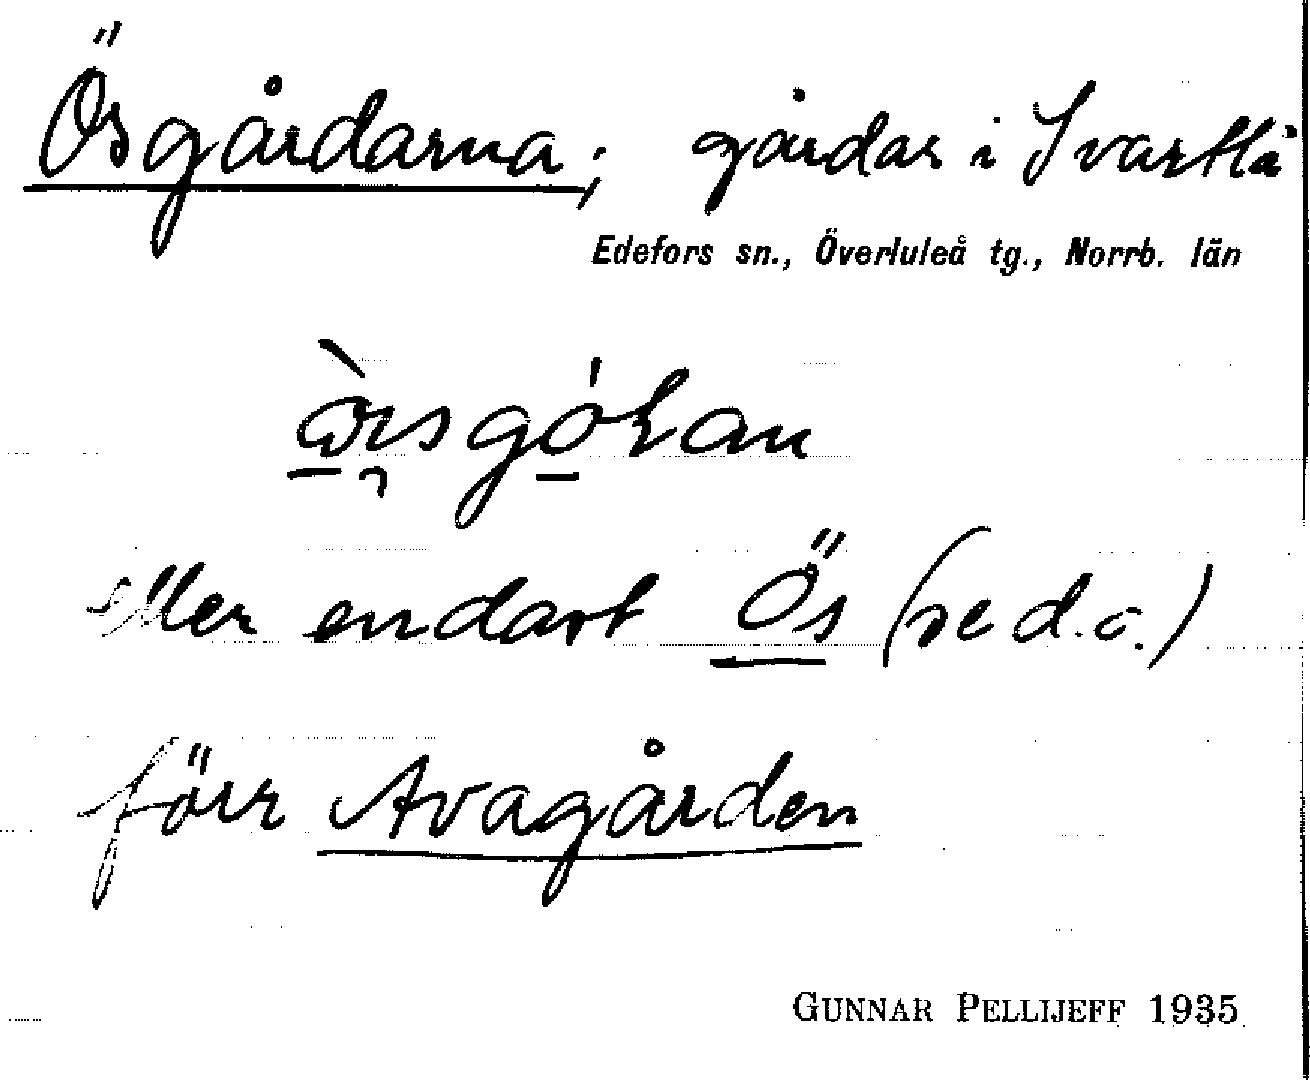 Ösgårdarna; gårdar i Svartlå
Edefors sn., Överluleå tg., Norrb. län
eller endart Ös (se d.o.)
förr Avagården
GUNNAR PELLIJEFF 1935